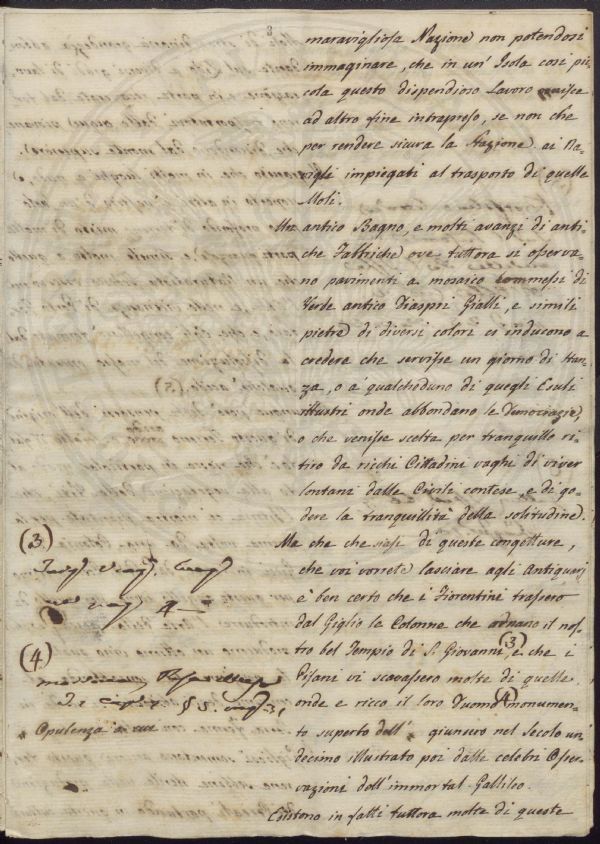 3
maravigliosa Nazione non potendosi
immaginare, che in un' Isola così pic-
cola questo dispendioso Lavoro venisse
ad altro fine intrapreso, se non che
per rendere sicura la Stazione ai Na-
vigli impiegati al trasporto di quelle
Moli.
Un antico Bagno, e molti avanzi di anti-
che Fabbriche ove tuttora si osserva-
no pavimenti a mosaico commessi di
Verde antico Diaspri Gialli, e simili
pietre di diversi colori ci inducono a
credere che servisse un giorno di Stan-
za, o a qualcheduno di quegli Esuli
illustri onde abbondano le Democrazie,
o che venisse scelta per tranquillo ri-
tiro da ricchi Cittadini vaghi di viver
lontani dalle Civili contese, e di go-
dere la tranquillità della solitudine.
Ma che che siasi di queste congetture,
che voi vorrete lasciare agli Antiquarj
è ben certo che i Fiorentini trassero
dal Giglio le Colonne che ornano il nos-
tro bel Tempio di S. Giovanni (3), e che i
Pisani vi scavassero molte di quelle
onde e ricco il loro Duomo (4) monumen-
to superbo dell' giunsero nel Secolo un
decimo illustrato poi dalle celebri Osser-
vazioni dell' immortal Gallileo.
Esistono in fatti tuttora molte di queste
(3)
(4)
§ 5.
Opulenza a cui